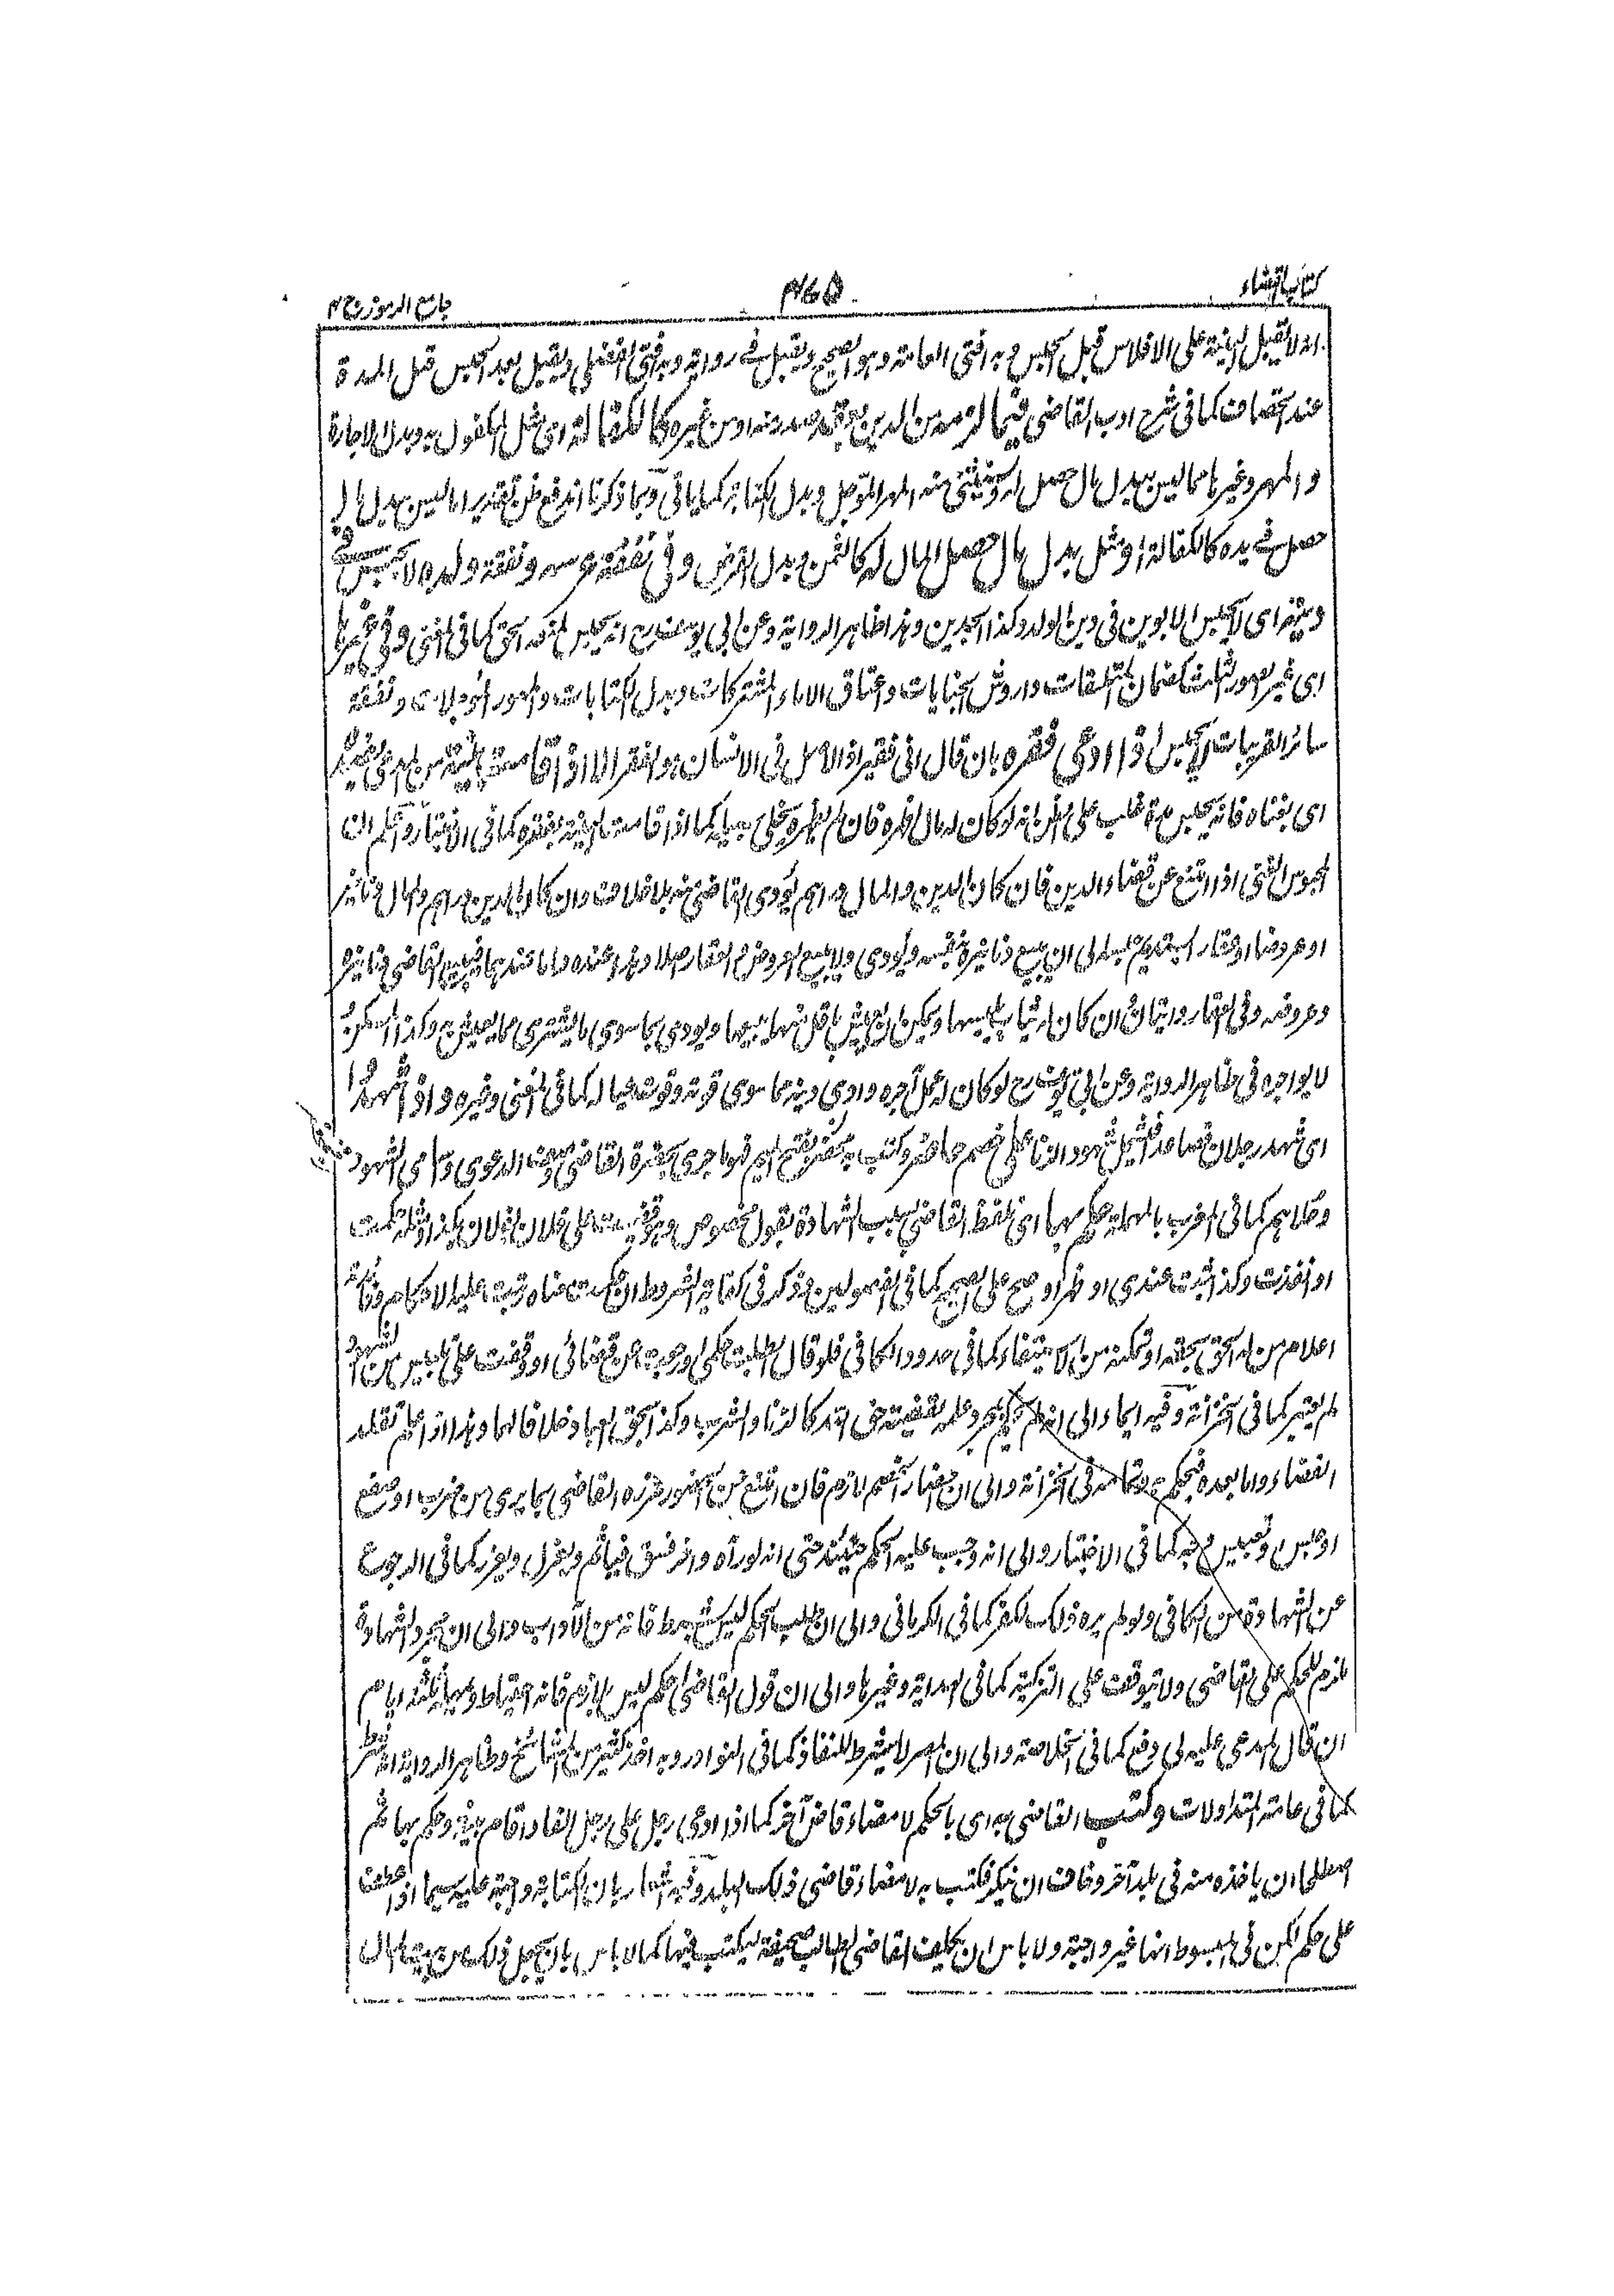 كتاب القضاء
٤٦٥
جامع الرموز ج ٢
انه لا تقبل البينة على الافلاس قبل الحبس وبه افتى العامة وهو الصحيح وتقبل في رواية وبه افتى الفضلي وتقبل بعد الحبس قبل المدة
عند الخصاف كما في شرح ادب القاضي فيما لزمه من الدين بعقد صدر منه او من غيره كالكفالة اي مثل المكفول به وبدل الاجارة
والمهر وغيرها مما ليس ببدل مال حصل له ويستثنى منه المهر المؤجل وبدل الكتابة كما ياتي وبما ذكرنا اندفع ظن تقديرا ما ليس ببدل مال
حصل في يده كالكفالة او مثل بدل مال حصل المال له كالثمن وبدل القرض وفي نفقة عرسه ونفقة ولده لا يحبس في
دينه اي لا يحبس الابوين في دين الولد وكذا الجدين وهذا ظاهر الرواية وعن ابي يوسف رح انه يحبس لمنعه الحق كما في المغني وفي غيرها
اي غير الصور الثلث كضمان المتلفات واروش الجنايات واعتاق الاماء المشتركات وبدل الكتابات والمهور المؤجلات ونفقة
سائر القريبات لا يحبس اذا ادعى فقره بان قال اني فقير اذ الاصل في الانسان هو الفقر الا اذا قامت بينة من المدعي بضده
اي بغناه فانه يحبس مدة غلب على الظن انه لو كان له مال اظهره فان لم يظهره يخلي سبيله كما اذا قامت البينة بفقره كما في الاختيار واعلم ان
المحبوس الغني اذا امتنع عن قضاء الدين فان كان الدين والمال دراهم يؤدي القاضي منه بلا خلاف وان كان الدين دراهم والمال دنانير
او عروضا او عقارا يستديم حبسه الى ان يبيع دنانيره بنفسه ويؤدي ولا يبيع العروض ثم العقار اصلا وهذا عنده واما عندهما فيبيع القاضي دنانيره
وعروضه وفي العقار روايتان وان كان له ثياب يلبسها ويمكن ان يعيش باقل منها يبيعها ويؤدي بما سوى ما يشتري مما يعيش به وكذا المسكن و
لا يواجره في ظاهر الرواية وعن ابي يوسف رح لو كان له عمل آجره وادى دينه مما سوى قوته وقوت عياله كما في المغني وغيره واذا شهدوا
اي شهد رجلان فصاعدا فيشمل شهود الزنا على خصم حاضر وكتب به محضر بفتح الميم فهو ما جرى بحضرة القاضي وصف الدعوى واسامي الشهود
وحلاهم كما في المغرب بالمهملة حكم بها اي تلفظ القاضي بسبب الشهادة بقول مخصوص وهو قضيت على فلان لفلان بكذا ومثله حكمت
او انفذت وكذا ثبت عندي او ظهر او صح على الصحيح كما في الفصولين وذكر في كفاية الشروط ان حكمت معناه رتبت عليه الاحكام وفائدته
اعلام من له الحق بحقه او تمكينه من الاستيفاء كما في حدود الكافي فلو قال ابطلت حكمي او رجعت عن قضائي او وقفت على تلبيس من الشهود
لم يعتبر كما في الخزانة وفيه ايماء الى انه لم يحكم بمجرد علمه بقضية حق الله كالزنا والشرب وكذا بحق العباد خلافا لهما وهذا اذا علم قبل تقلد
القضاء واما بعده فيحكم وتمامه في الخزانة والى ان احضار الخصم لازم فان امتنع من الحضور عزره القاضي بما يرى من ضرب او صفع
او حبس او تعبيس وجه كما في الاختيار والى انه وجب عليه الحكم حينئذ حتى انه لو رآه واخر فسق فيأثم ويعزل ويعزر كما في الرجوع
عن الشهادة من الكافي ولو لم يره ذلك لكفر كما في الكرماني والى ان طلب الحكم ليس شرط فانه من الآداب والى ان مجرد الشهادة
ملزم للحكم على القاضي ولا يتوقف على التزكية كما في الهداية وغيرها والى ان قول القاضي احكم ليس بلازم فانه احتياط ويمهل ثلثة ايام
ان قال المدعى عليه لي دفع كما في الخلاصة والى ان المصر لا يشترط للنفاذ كما في النوادر وبه اخذ كثير من المشائخ وظاهر الرواية انه شرط
كما في عامة المتداولات وكتب القاضي به اي بالحكم لامضاء قاض آخر كما اذا ادعى رجل على رجل الفا واقام بينة وحكم بها ثم
اصطلحا ان ياخذه منه في بلد آخر وخاف ان ينكر فكتب به لامضاء قاضي ذلك البلد وفيه اشعار بان الكتابة واجبة عليه سيما اذا عطف
على حكم لكن في المبسوط انها غير واجبة ولا باس ان يكلف القاضي الطالب صحيفة ليكتب فيها كما لا باس بان يجعل ذلك من بيت المال